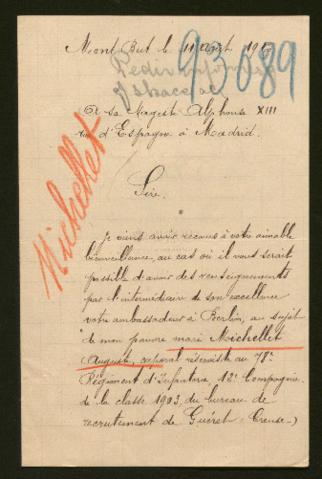 Mont But le 11 Août 19
93089
Pedir informes
A sa Magesté Alphonse XIII
roi d'Espagne à Madrid.
Michellet
Sire,
Je viens avoir recours à votre aimable
bienveillance, au cas où il vous serait
possible d'avoir des renseignements
par l'intermédiaire de son excellence
votre ambassadeur à Berlin, au sujet
de mon pauvre mari Michellet
Auguste, caporal réserviste au 78e
Régiment d'Infanterie 12e Compagnie.
de la classe 1903, du bureau de
recrutement de Guéret (Creuse)